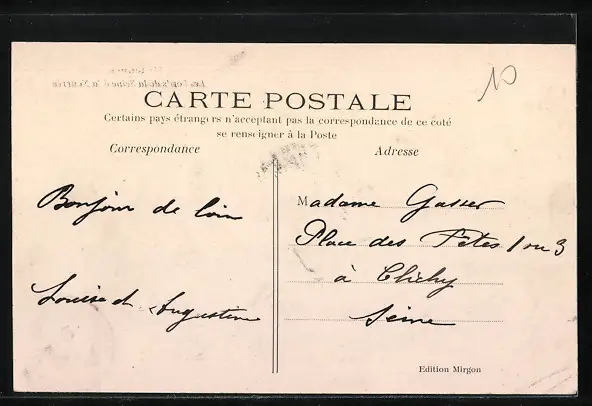 10
CARTE POSTALE
Certains pays étrangers n'acceptant pas la correspondance de ce coté
se renseigner à la Poste
Correspondance
Adresse
Bonjour de loin
Louise et Augustine
Madame Gasser
Place des Fêtes 1 ou 3
à Clichy
Seine
Edition Mirgon